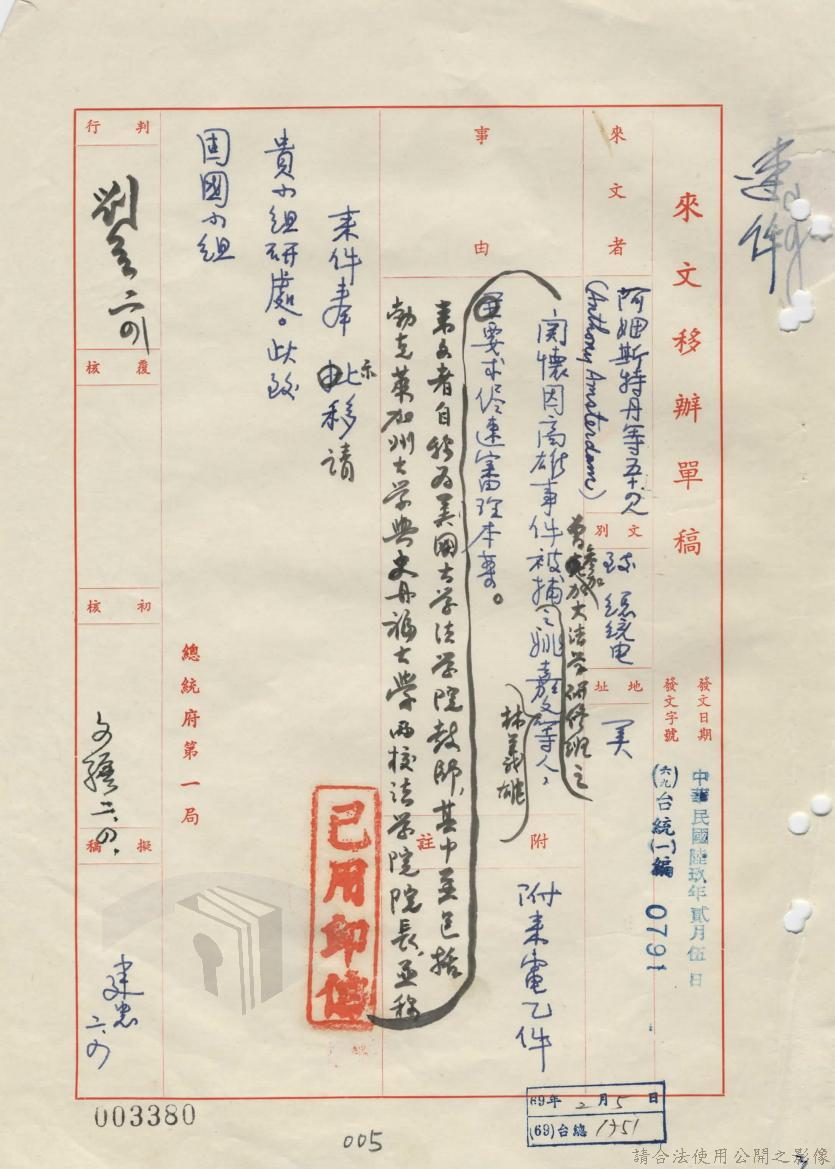 速件
來文移辦單稿
發文日期
中華民國陸玖年貳月伍日
發文字號
(六九)台統(一)編 0791
來文者
阿姆斯特丹等五十八人
(Anthony Amsterdam)
文別
致總統电
地址
美
事由
関懷因高雄事件被捕之姚嘉文等人,
曾參加加大法学研修班之
林義雄
並要求侭速審理本案。
來文者自称为美國大学法学院教師,其中並包括
勃克萊加州大学與史丹福大学两校法学院院長,並称
附註
附來電乙件
來件奉
批示移請
貴小組研處。此致
固國小組
總統府第一局
已用印信
判行
覆核
初核
二.四.
擬稿
二.四
69年2月5日
(69)台總 1751
003380
005
請合法使用公開之影像